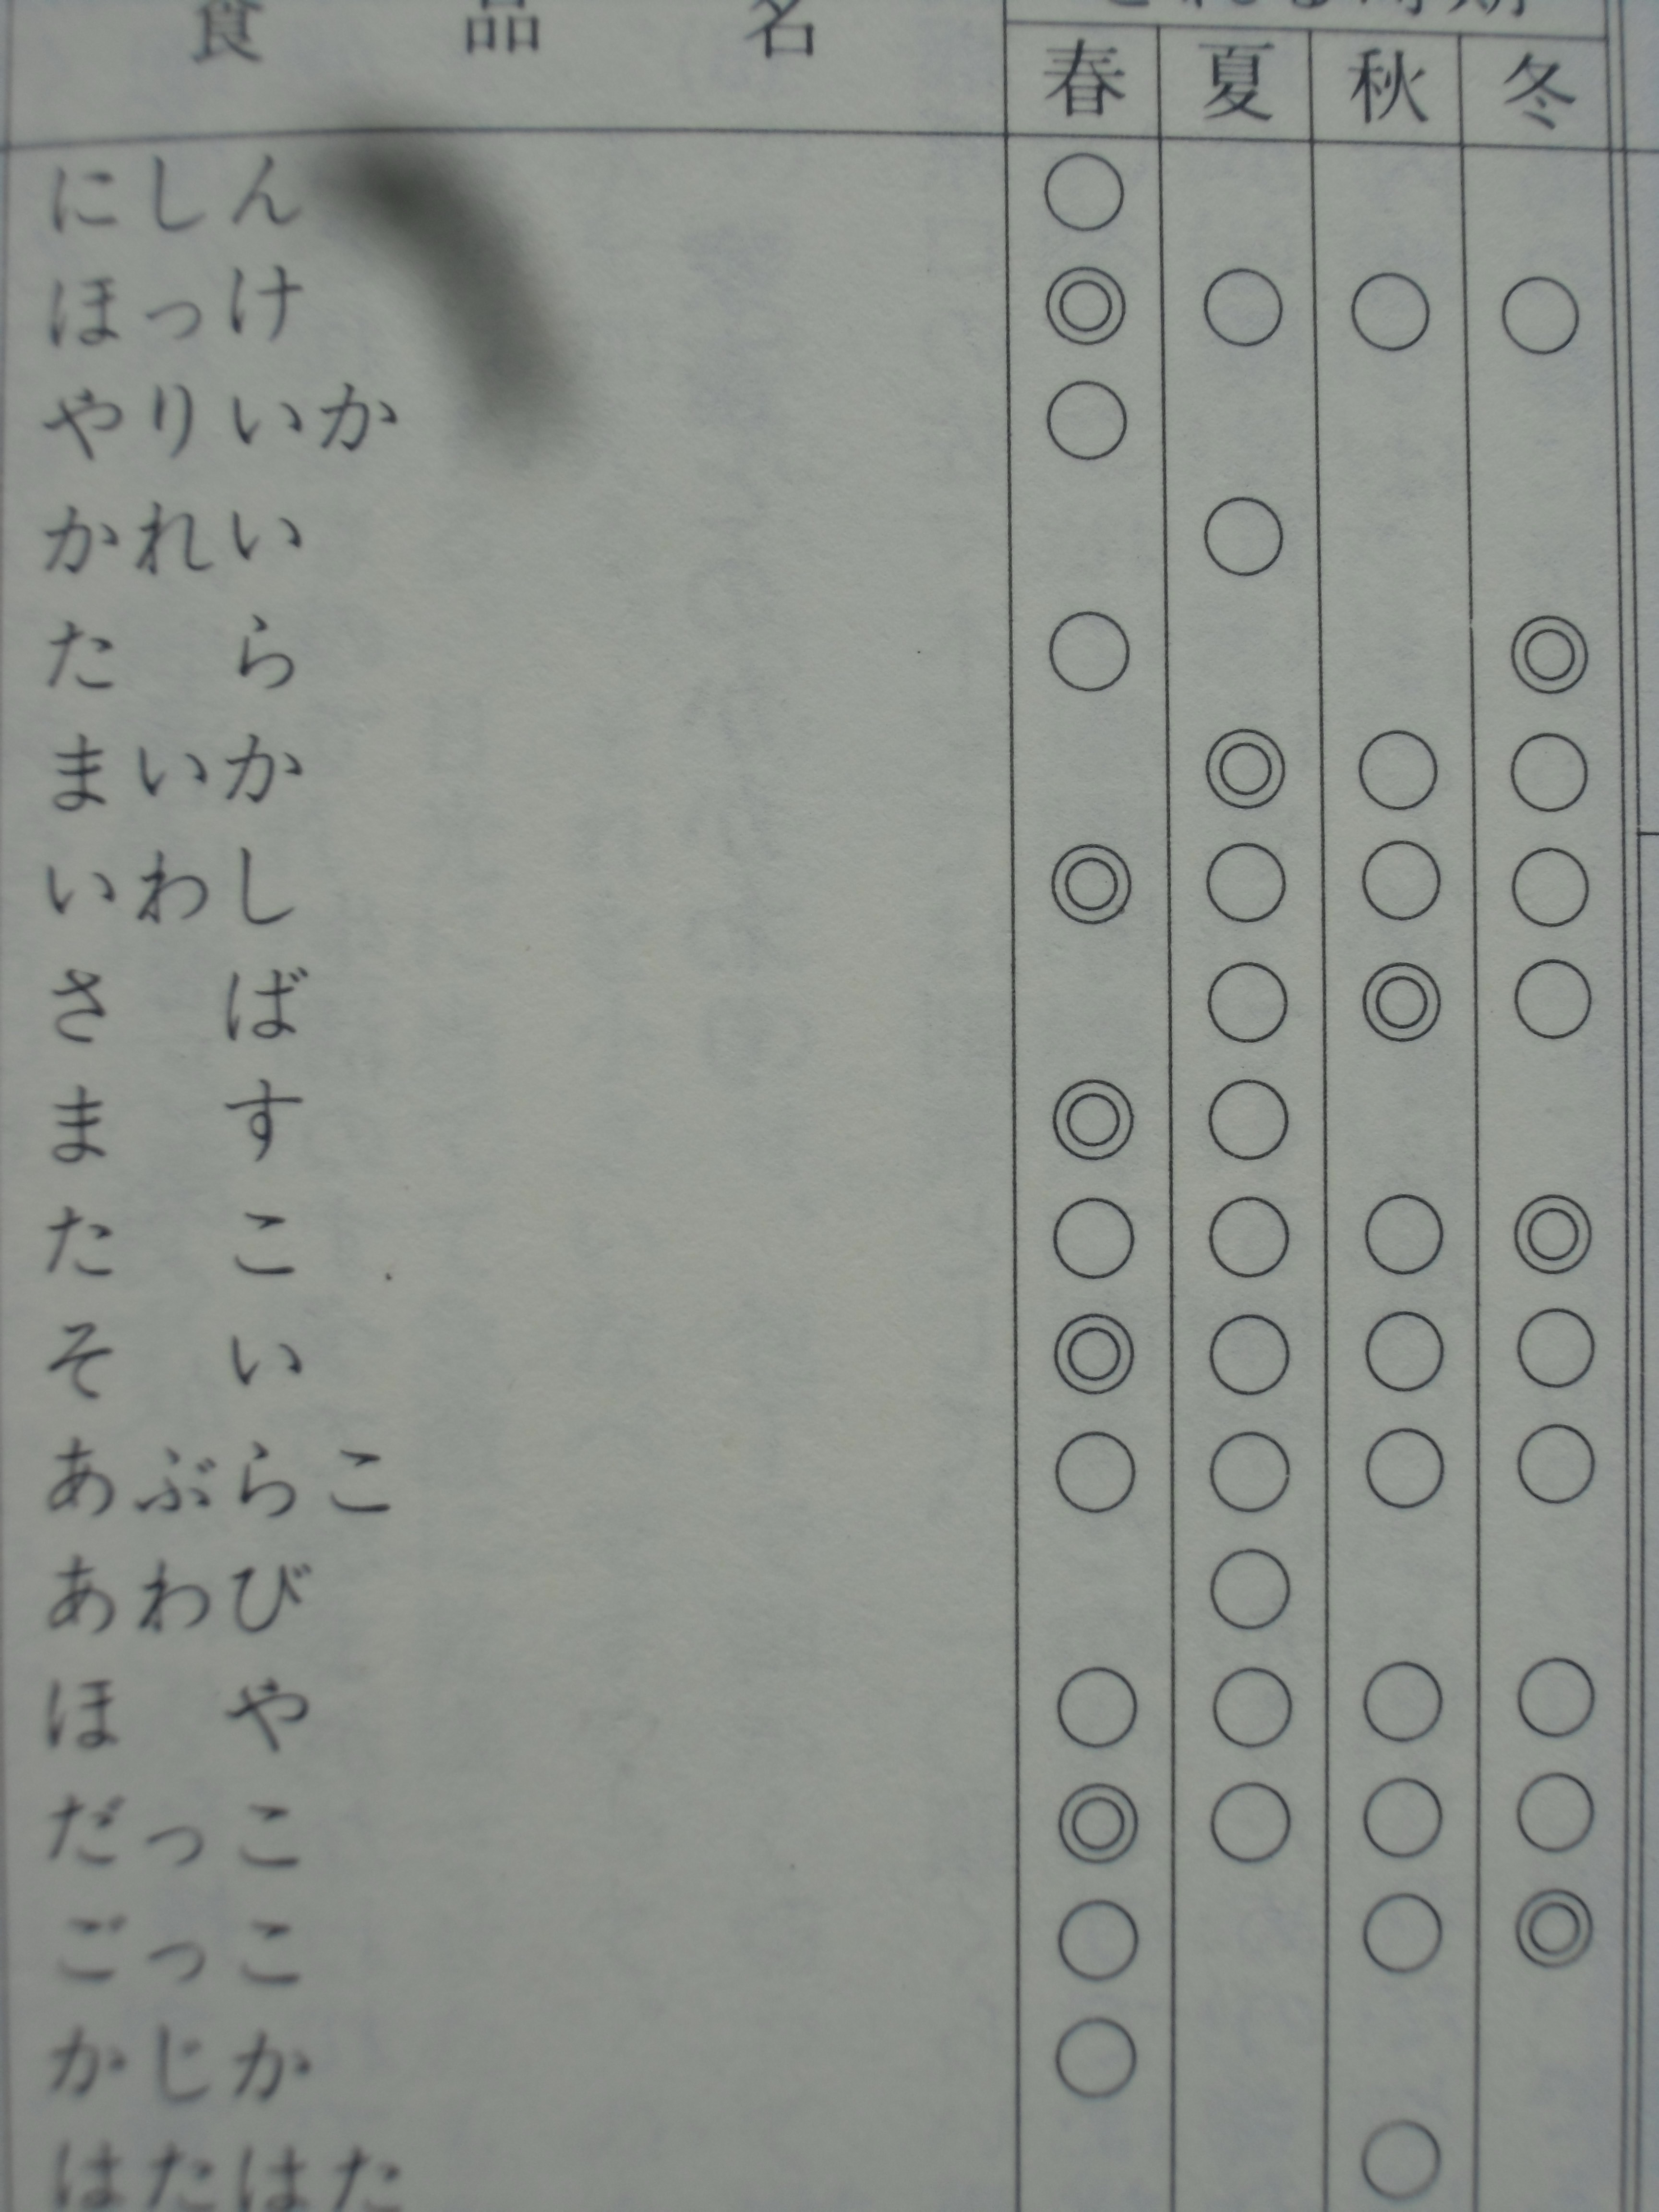 とれる時期
食品名 春 夏 秋 冬
にしん ○
ほっけ ◎ ○ ○ ○
やりいか ○
かれい ○
たら ○ ◎
まいか ◎ ○ ○
いわし ◎ ○ ○ ○
さば ○ ◎ ○
ます ◎ ○
たこ ○ ○ ○ ◎
そい ◎ ○ ○ ○
あぶらこ ○ ○ ○ ○
あわび ○
ほや ○ ○ ○ ○
だっこ ◎ ○ ○ ○
ごっこ ○ ○ ◎
かじか ○
はたはた ○